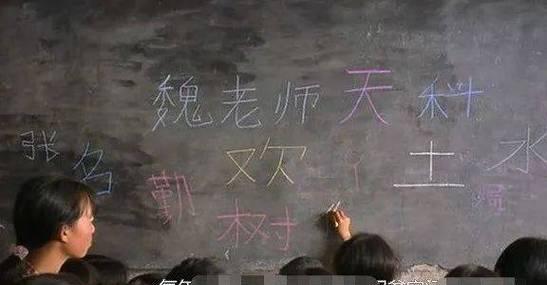 魏老师天科
张名勤欢土水
树
每